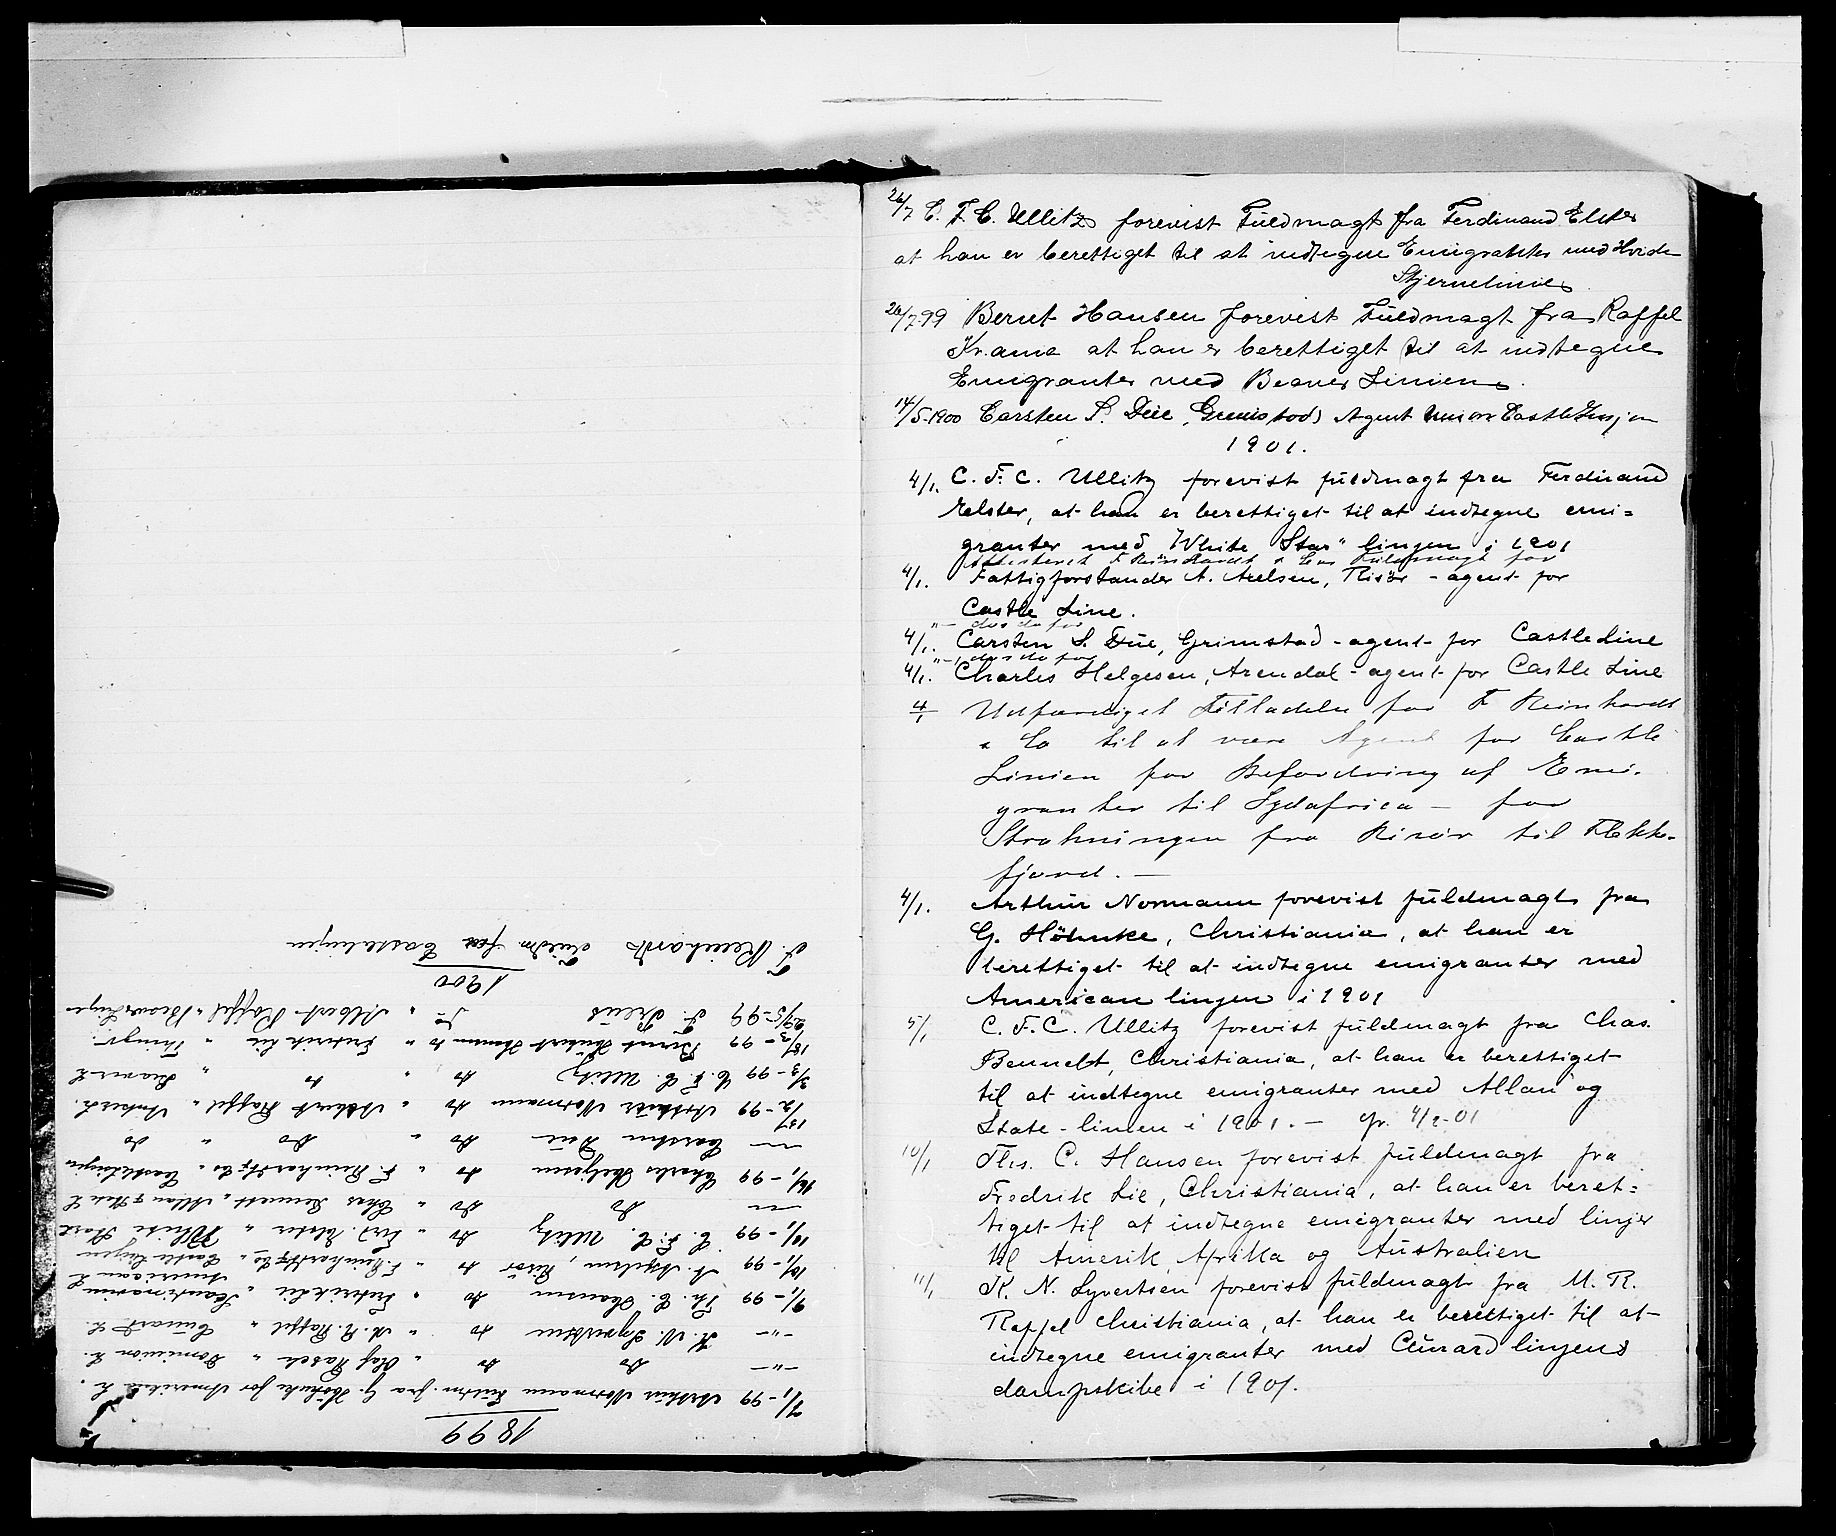 26/7 C. F. C. Ullitz forevist Fuldmagt fra Ferdinand Elster
at han er berettiget til at indtegne Emigranter med Hvide
Stjernelinie
26/7 99 Bernt Hansen forevist Fuldmagt fra Raffel
Kr.ania at han er berettiget til at indtegne
Emigranter med Beaver Linien.
14/5-1900 Carsten S. Due, Grimstad, Agent Union Castle Linjen
1901.
4/1. C. F. C. Ullitz forevist fuldmagt fra Ferdinand
Elster, at han er berettiget til at indtegne emi=
granter med "White Star" linjen i 1901
Attesteret F Reinhardt & Co's Fuldmagt for
4/1. Fattigforstander A. Axelsen, Risør - agent for
Castle Line.
"— do do for
4/1. Carsten S. Due, Grimstad - agent for Castle Line
"— do do for
4/1. Charles Helgesen, Arendal - agent for Castle Line
4/1 Udfærdiget Tilladelse for F Reinhardt
& Co til at være Agent for Castle
Linien for Befordring af Emi-
granter til Sydafrica — for
Strækningen fra Risør til Flekke-
fjord. —
4/1. Arthur Normann forevist fuldmagt fra
G. Höhnke, Christiania, at han er
berettiget til at indtegne emigranter med
American linjen i 1901
5/1 C. F. C. Ullitz forevist fuldmagt fra Chas.
Bennett, Christiania, at han er berettiget
til at indtegne emigranter med Allan og
State-linien i 1901. — 4/2-01
10/1 Ths. C. Hansen forevist fuldmagt fra
Fredrik Lie, Christiania, at han er beret=
tiget til at indtegne emigranter med linjer
til Amerik, Afrika og Australien
11/1 K. N. Syvertsen forevist fuldmagt fra M. R.
Raffel Christiania, at han er berettiget til at
indtegne emigranter med Cunard linjens
dampskibe i 1901.
1899
7/1-99 Arthur Normann Fuldm. fra G. Höhnke for Amerika L.
—"— Do do " Olaf Pasch " Dominion L.
—"— K. N. Syvertsen do " M. R. Raffel " Cunard L.
9/1-99 Th. C. Hansen do " Fredrik Lie " Skandinavien
American L
10/1-99 A. Axelsen, Risør do " F. Reinhardt & Co " Castle Linjen
10/1-99 C. F. C. Ullitz do " Ferd. Elster " White Star L
—"— Do do " Chas Bennett " Allan & State L
16/1-99 Charles Helgesen do " F. Reinhardt & Co " Castlelinjen
—"— Carsten Due do " do " do
15/2-99 Arthur Normann do " Albert Raffel " Anker L.
3/3-99 C. F. C. Ullitz do " do " Beaver L
18/3-99 Bernt Hansen do " Fredrik Lie " Thingv.
29/5-99 F. do " Albert Raffel " Beaver Linjen
1900
F. Reinhardt Fuldm for Castlelinjen